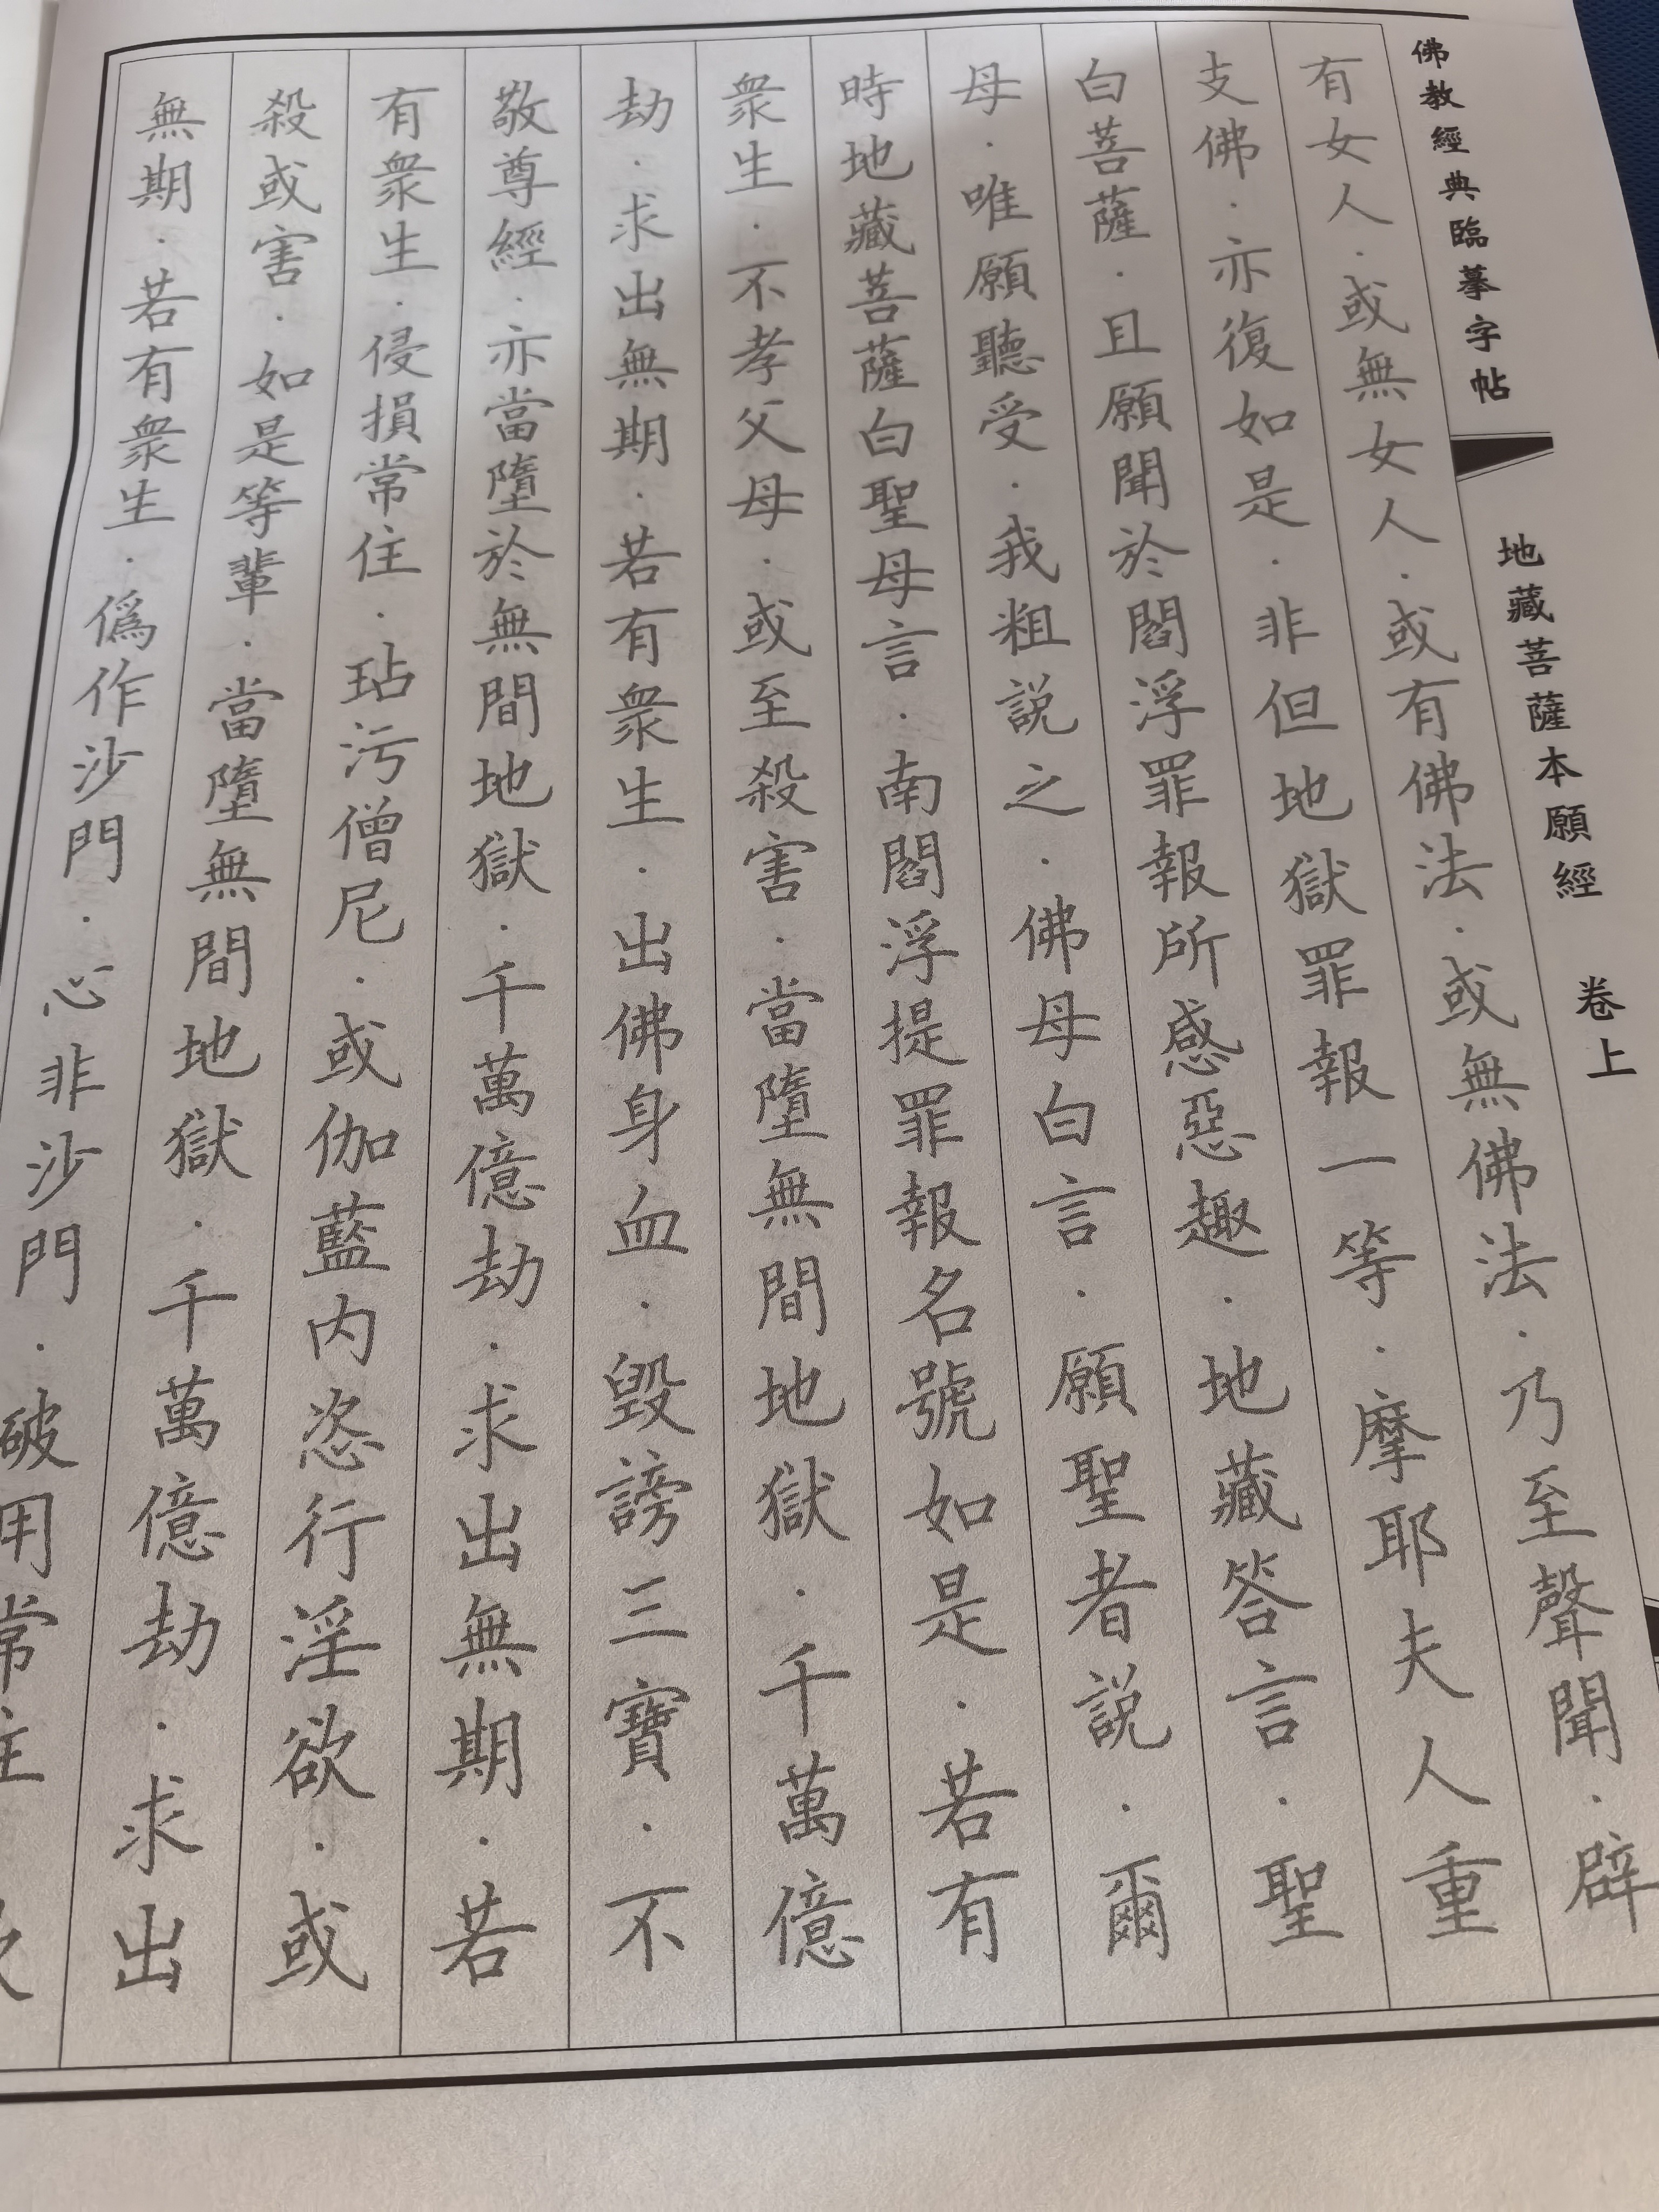 佛教經典臨摹字帖
地藏菩薩本願經 卷上
有女人．或無女人．或有佛法．或無佛法．乃至聲聞．辟
支佛．亦復如是．非但地獄罪報一等．摩耶夫人重
白菩薩．且願聞於閻浮罪報所感惡趣．地藏答言．聖
母．唯願聽受．我粗說之．佛母白言．願聖者說．爾
時地藏菩薩白聖母言．南閻浮提罪報名號如是．若有
衆生．不孝父母．或至殺害．當墮無間地獄．千萬億
劫．求出無期．若有衆生．出佛身血．毀謗三寶．不
敬尊經．亦當墮於無間地獄．千萬億劫．求出無期．若
有衆生．侵損常住．玷污僧尼．或伽藍內恣行淫欲．或
殺或害．如是等輩．當墮無間地獄．千萬億劫．求出
無期．若有衆生．僞作沙門．心非沙門．破用常住